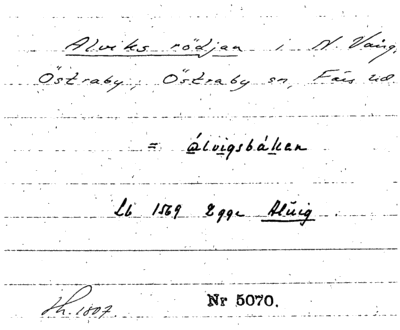 Alviks rödjan i N. Vång,
Östraby, Östraby sn, Färs hd.
= álvigsbákan
Lb 1569 Egge Aluig
Sk. 1807
Nr 5070.